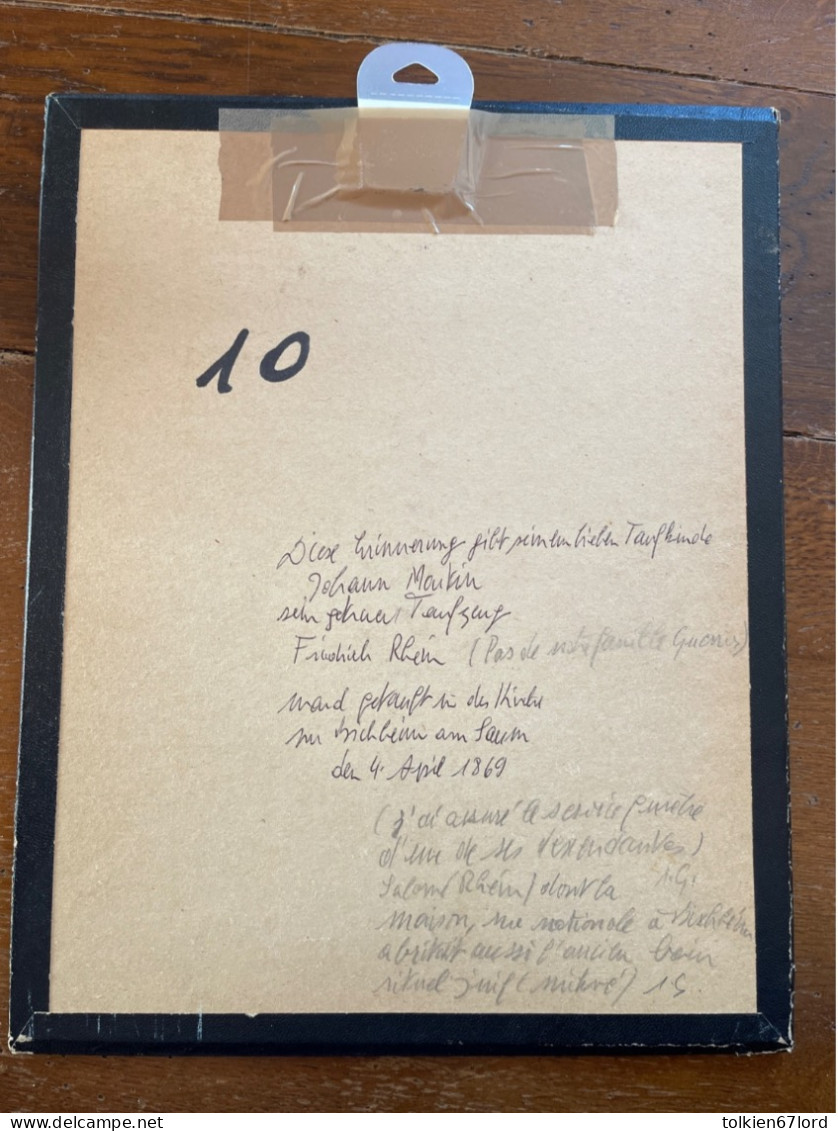 10
Diese Erinnerung gibt seinem lieben Taufkinde
Johann Martin
sein getreuer Taufzeug
Friedrich Rhein (Pas de notre famille Guerrier)
ward getauft in der Kirche
zu Bischheim am Saum
den 4. April 1869
(j'ai assuré le service funèbre
d'une de ses descendantes)
Salomé (Rhein) dont la J.G.
maison, rue nationale à Bischheim
abritait aussi l'ancien bain
rituel juif (mikvé) J.G.
tolkien67lord